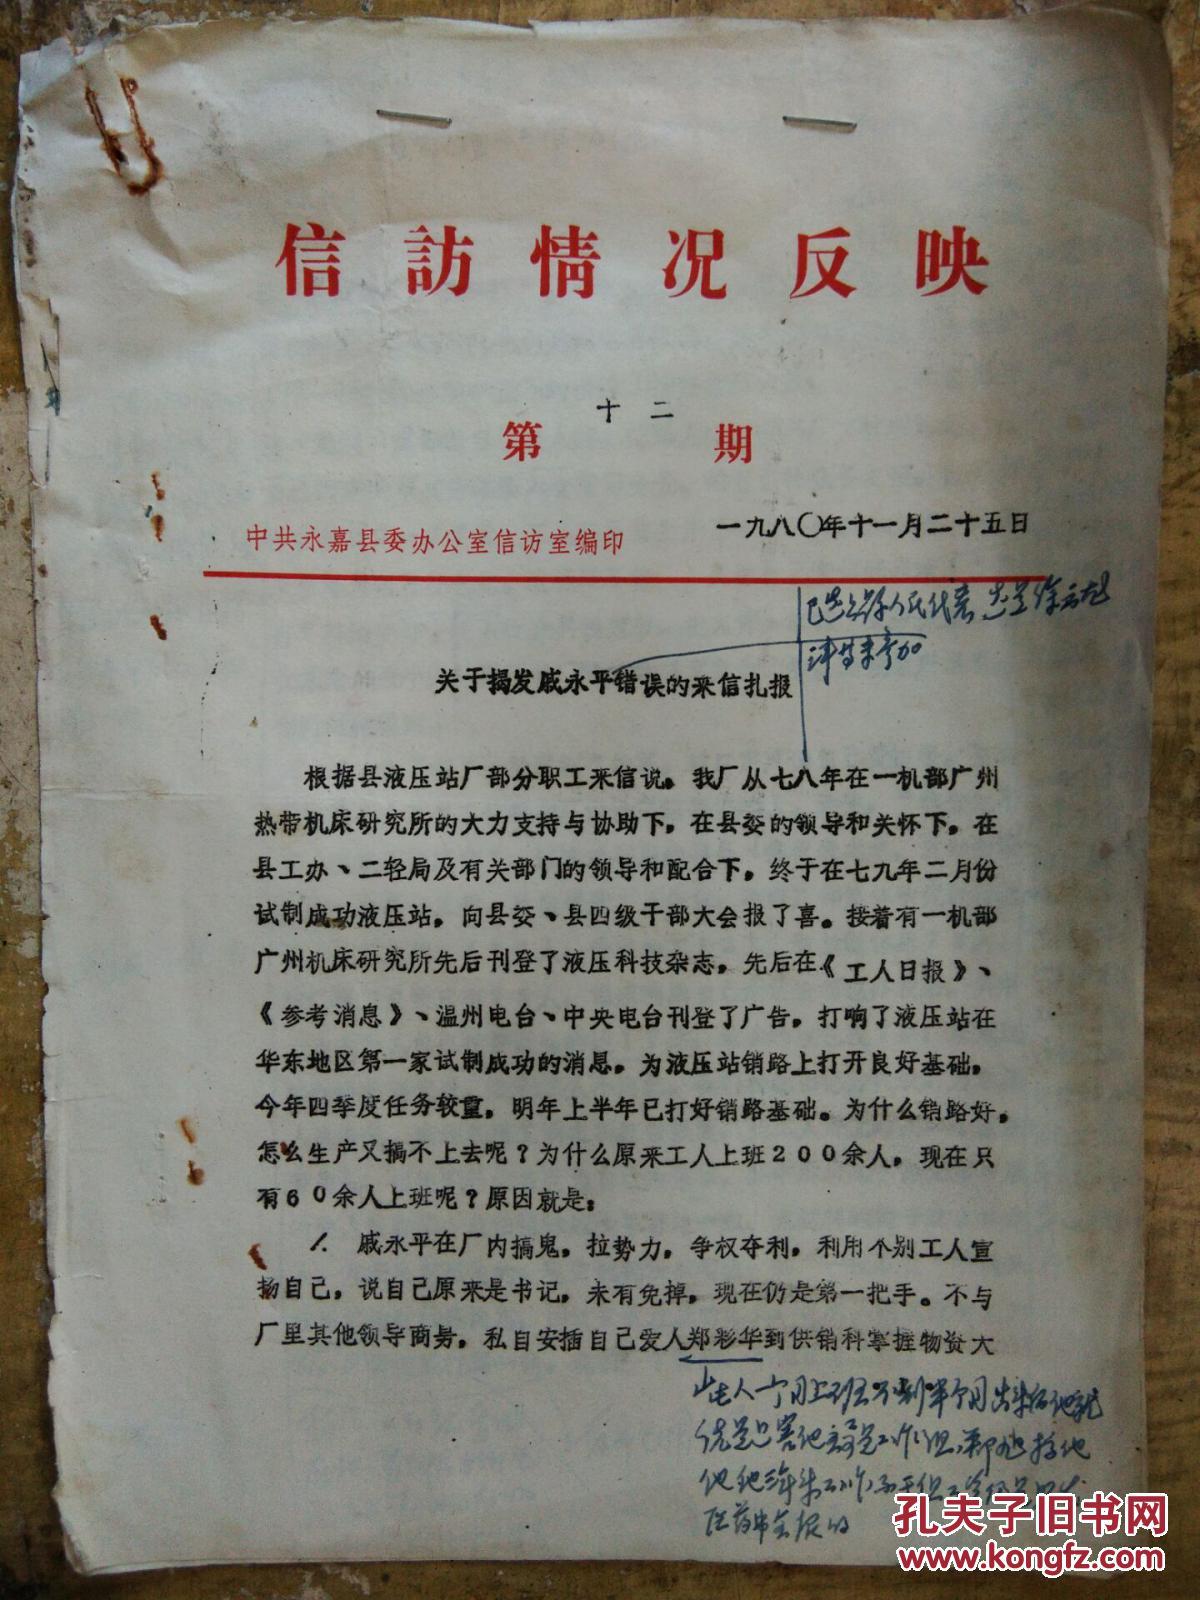 信訪情况反映
第十二期
中共永嘉县委办公室信访室编印
一九八〇年十一月二十五日
关于揭发戚永平错误的来信扎报
根据县液压站厂部分职工来信说。我厂从七八年在一机部广州
热带机床研究所的大力支持与协助下，在县委的领导和关怀下。在
县工办、二轻局及有关部门的领导和配合下，终于在七九年二月份
试制成功液压站，向县委、县四级干部大会报了喜。接着有一机部
广州机床研究所先后刊登了液压科技杂志，先后在《工人日报》、
《参考消息》、温州电台、中央电台刊登了广告，打响了液压站在
华东地区第一家试制成功的消息，为液压站销路上打开良好基础，
今年四季度任务较重，明年上半年已打好销路基础。为什么销路好，
怎么生产又搞不上去呢？为什么原来工人上班200余人，现在只
有60余人上班呢？原因就是：
1. 戚永平在厂内搞鬼，拉势力，争权夺利，利用个别工人宣
扬自己，说自己原来是书记，未有免掉，现在仍是第一把手。不与
厂里其他领导商量，私自安插自己爱人郑彩华到供销科掌握物资大
孔夫子旧书网
www.kongfz.com